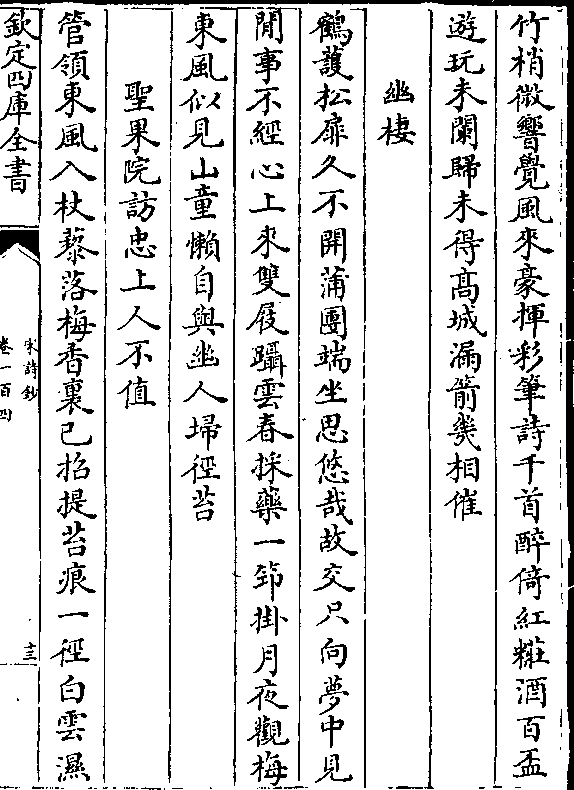 竹梢微響覺風來豪揮彩筆詩千首醉倚紅粧酒百盃
遊玩未闌歸未得髙城漏箭㡬相催
幽棲
鶴護松扉久不開蒲團端坐思悠哉故交只向夢中見
閒事不經心上來雙屐躡雲春採藥一筇掛月夜觀梅
東風似見山童懶自與幽人埽徑苔
聖果院訪忠上人不值
管領東風入杖藜落梅香裏已招提苔痕一徑白雲濕
欽定四庫全書
宋詩鈔
卷一百四
十三